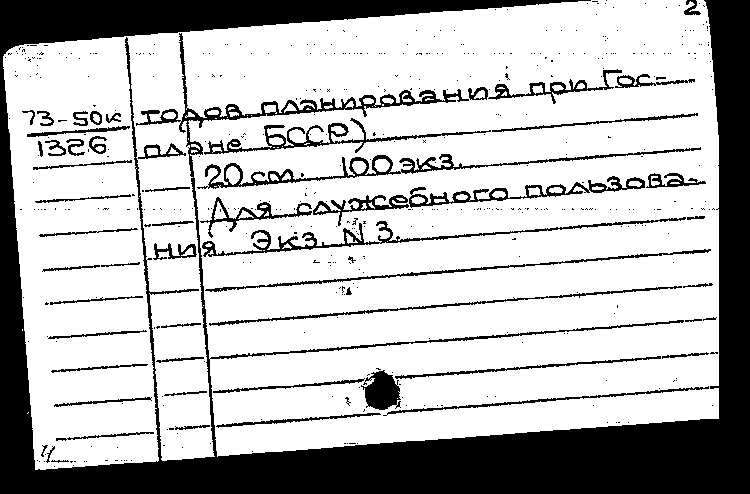 2
73-50к
1326
тодов планирования при Гос-
плане БССР).
20 см. 100 экз.
Для служебного пользова-
ния. Экз. N 3.